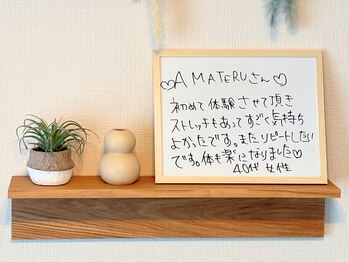 ♡AMATERUさん♡
初めて体験させて頂き
ストレッチもあってすごく気持ち
よかったです。またリピートしたい
です。体も楽になりました♡
40代 女性